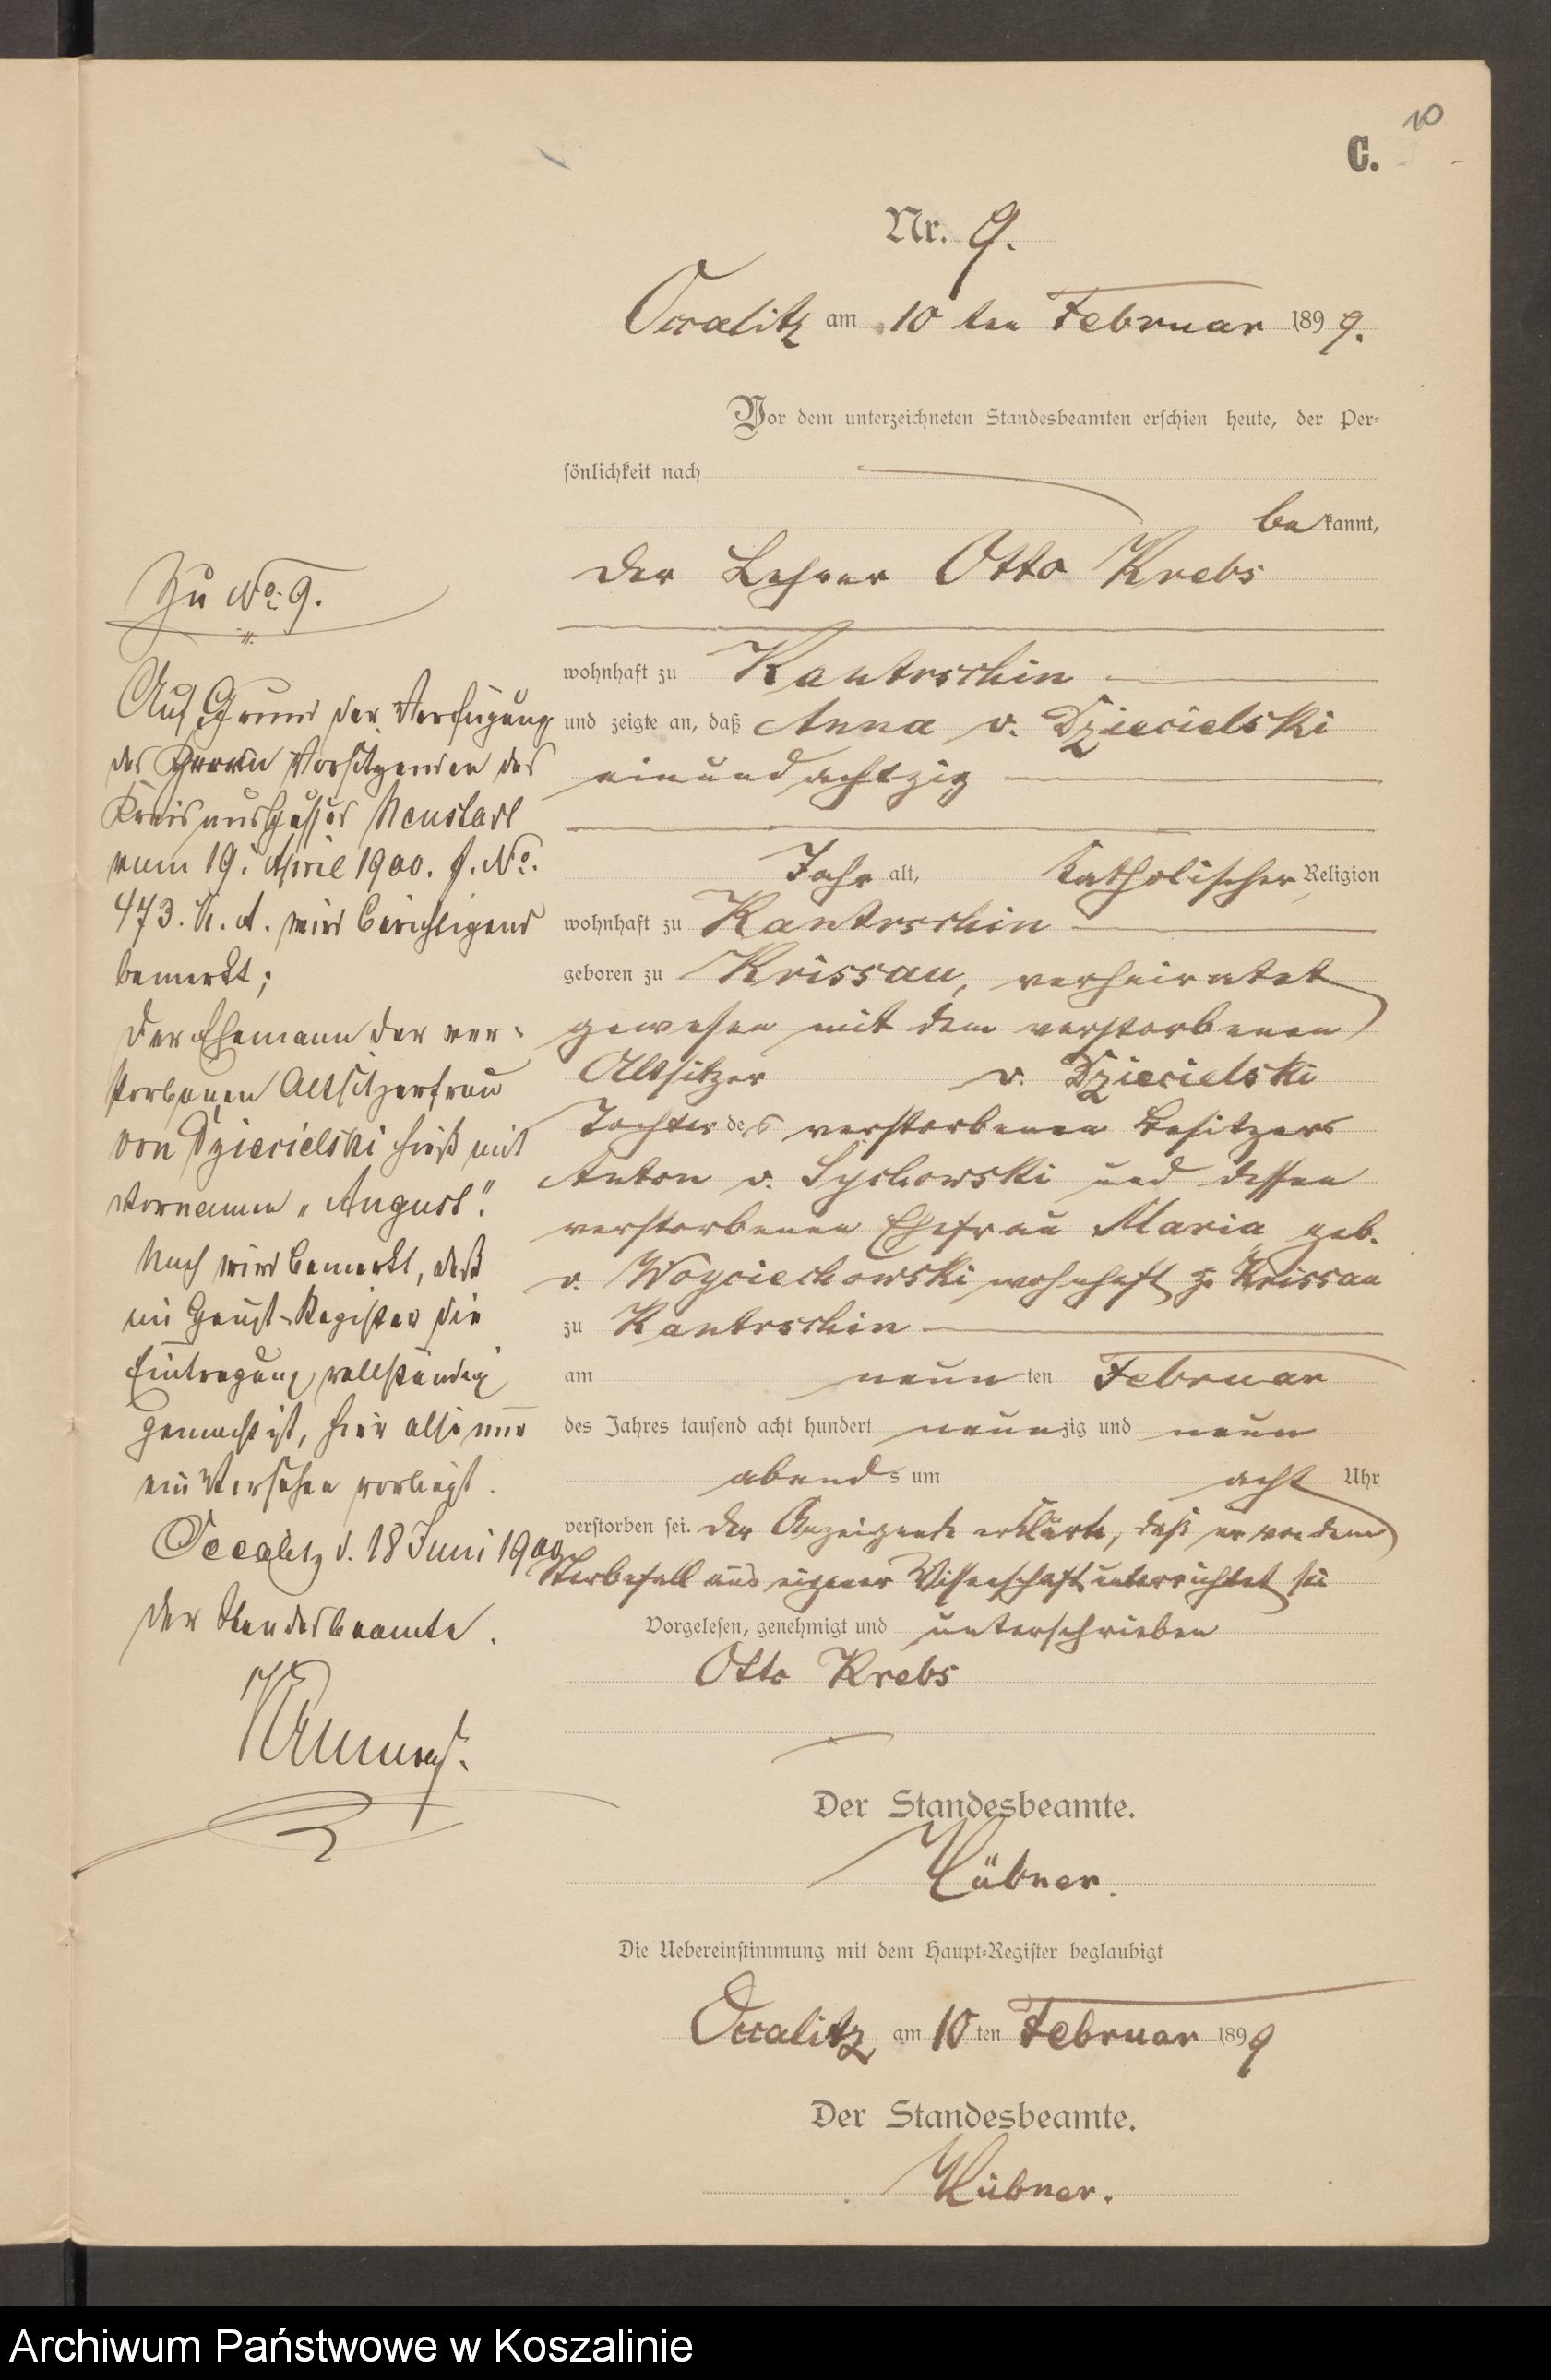 10
C.
Nr. 9.
Occalitz am 10 ten Februar 1899.
Vor dem unterzeichneten Standesbeamten erschien heute, der Per-
sönlichkeit nach
bekannt,
der Lehrer Otto Krebs
wohnhaft zu Kantrschin
und zeigte an, daß Anna v. Dziecielski
einundachtzig
Jahr alt, katholischer Religion
wohnhaft zu Kantrschin
geboren zu Krissau, verheiratet
gewesen mit dem verstorbenen
Altsitzer v. Dziecielski
Tochter des verstorbenen Besitzers
Anton v. Sychowski und dessen
verstorbenen Ehefrau Maria geb.
v. Woyciechowski wohnhaft zu Krissau
zu Kantrschin
am neunten Februar
des Jahres tausend acht hundert neunzig und neun
abends um acht Uhr
verstorben sei. Der Anzeigende erklärte, daß er von dem
Sterbefall aus eigener Wissenschaft unterrichtet sei
Vorgelesen, genehmigt und unterschrieben
Otto Krebs
Der Standesbeamte.
Hübner.
Die Uebereinstimmung mit dem Haupt-Register beglaubigt
Occalitz am 10 ten Februar 1899
Der Standesbeamte.
Hübner.
Zu No: 9.
Auf Grund der Verfügung
des Herrn Vorsitzenden des
Kreisausschusses Neustadt
vom 19. April 1900. J. No.
473. K. A. wird berichtigend
bemerkt;
Der Ehemann der ver-
storbenen Altsitzerfrau
von Dziecielski hieß mit
Vornamen "August".
Noch wird bemerkt, daß
im Haupt-Register die
Eintragung vollständig
gemacht ist, hier also nur
ein Versehen vorliegt.
Occalitz d. 18 Juni 1900
Der Standesbeamte.
Archiwum Państwowe w Koszalinie